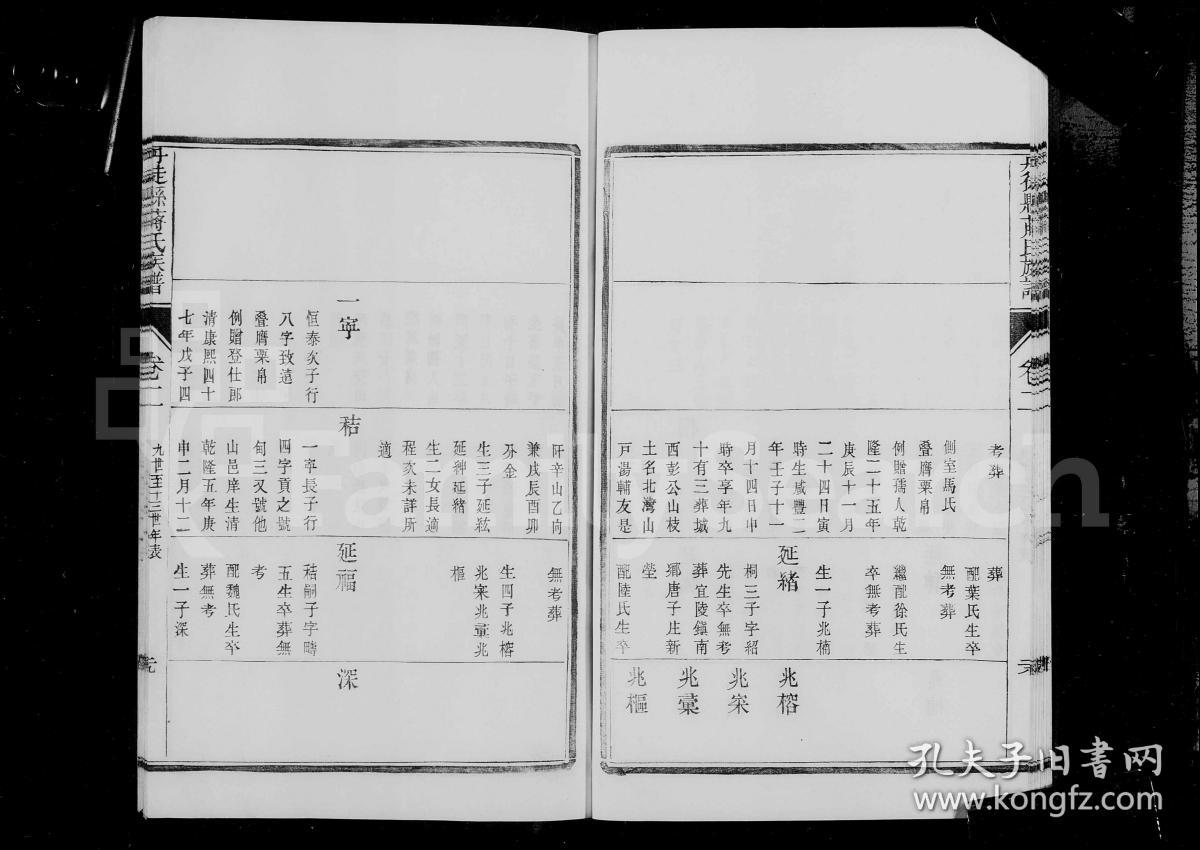 考葬
側室馬氏
疊膺粟帛
例贈孺人乾
隆二十五年
庚辰十一月
二十四日寅
時生咸豐二
年壬子十一
月十四日申
時卒享年九
十有三葬城
西彭公山枝
土名北灣山
戸湯輔友是
葬
配葉氏生卒
無考葬
繼配徐氏生
卒無考葬
生一子兆楠
延緒
桐三子字紹
先生卒無考
葬宜陵鎮南
鄉唐子庄新
塋
配陸氏生卒
兆榕
兆寀
兆彙
兆樞
卷二
一寧
恒泰次子行
八字致遠
疊膺粟帛
例贈登仕郎
清康熙四十
七年戊子四
阡辛山乙向
兼戌辰酉卯
分金
生三子延紘
延紳延緒
生二女長適
程次未詳所
適
秸
一寧長子行
四字貢之號
甸三又號他
山邑庠生清
乾隆五年庚
申二月十二
無考葬
生四子兆榕
兆寀兆彙兆
樞
延福
秸嗣子字疇
五生卒葬無
考
配魏氏生卒
葬無考
生一子深
深
丹徒縣蔣氏族譜
卷二
九世至十三世年表